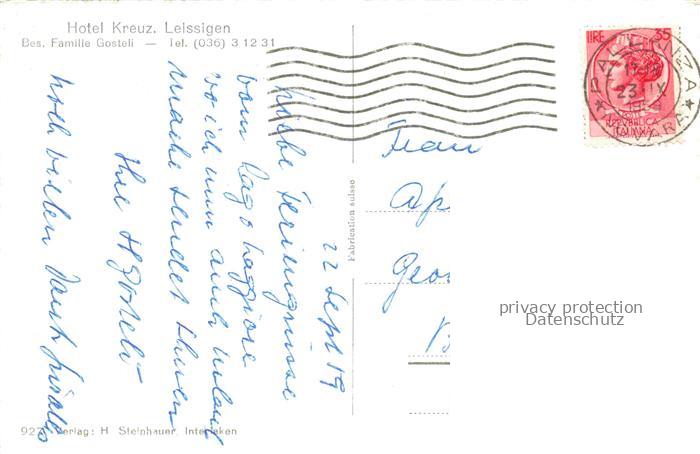 Hotel Kreuz, Leissigen
Bes. Familie Gosteli — Tel. (036) 3 12 31
22 Sept 19
Liebe Feriengrüsse
vom Lago Maggiore
wo ich nun auch Urlaub
mache sendet Ihnen
Ihre H Gosteli
noch vielen Dank
Fabrication suisse
Frau
Ap
Geor
B
LIRE 35
PALLANZA
23. IX
REPVBBLICA
ITALIANA
privacy protection
Datenschutz
927 Verlag: H. Steinhauer, Interlaken